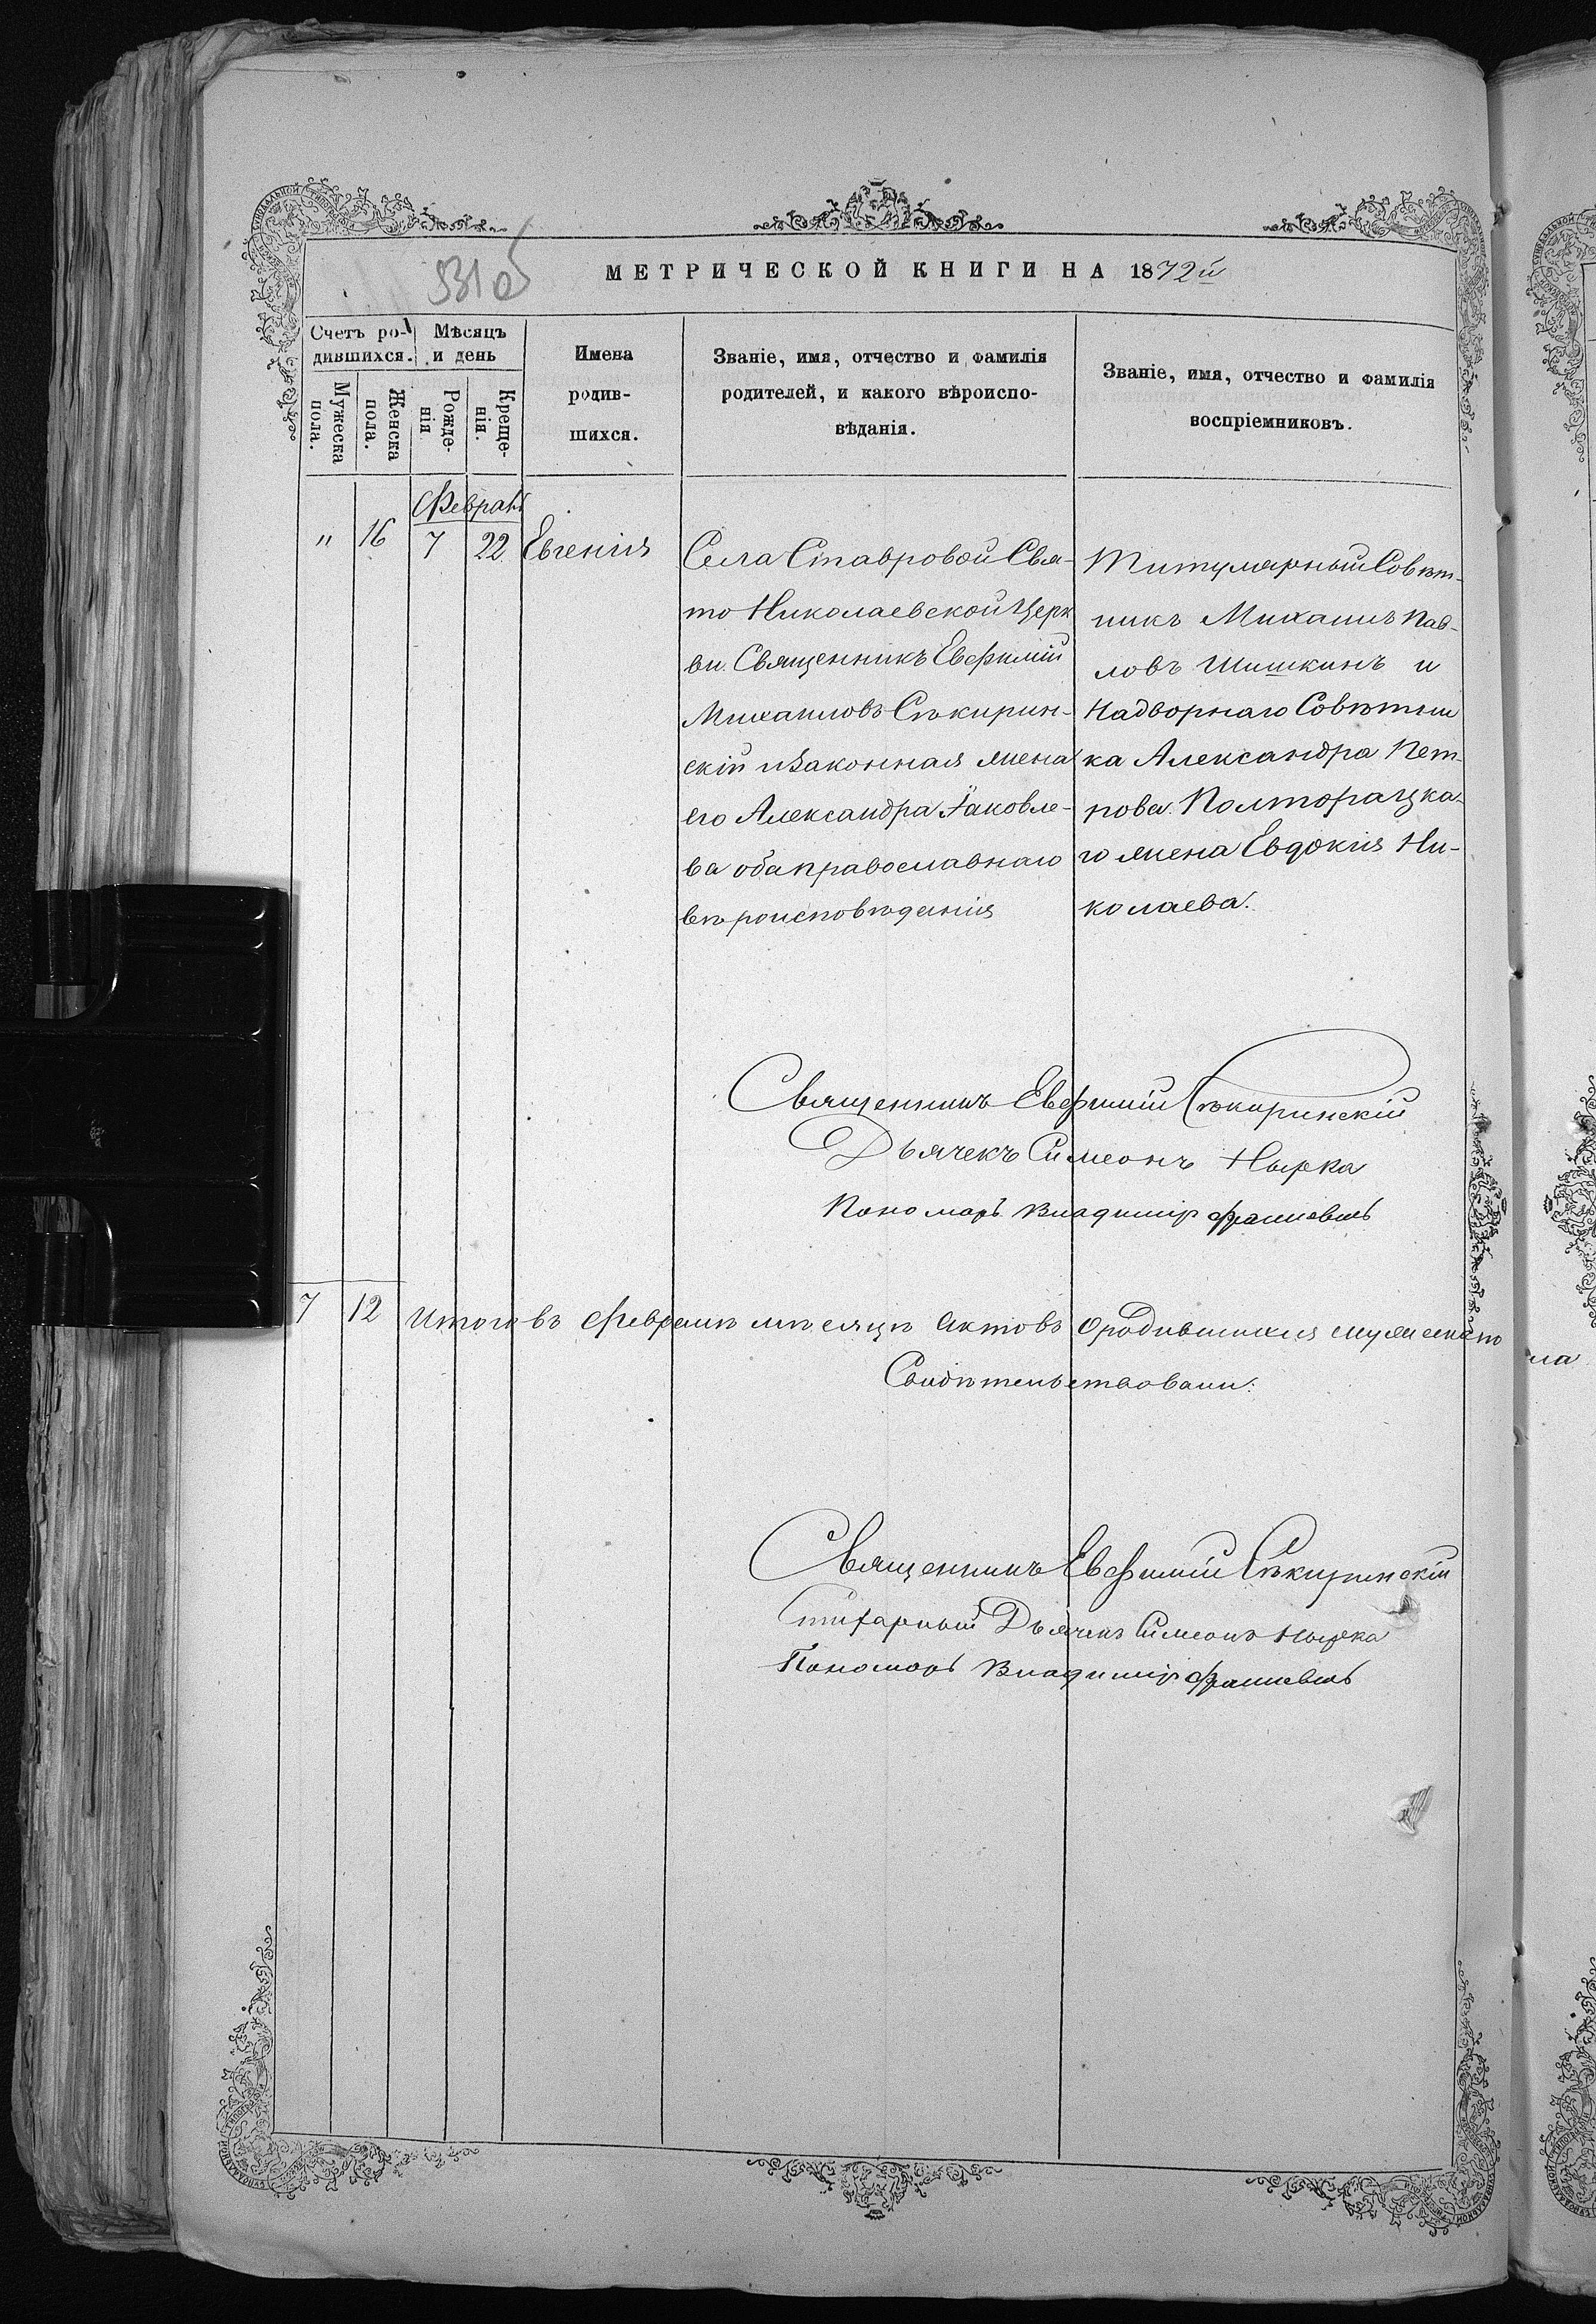 531об
МЕТРИЧЕСКОЙ КНИГИ НА 1872й
Счетъ ро-
дившихся.
Мужеска
пола.
Женска
пола.
Мѣсяцъ
и день
Рожде-
нія
Креще-
нія.
Имена
родив-
шихся.
Званіе, имя, отчество и фамилія
родителей, и какого вѣроиспо-
вѣданія.
Званіе, имя, отчество и фамилія
воспріемниковъ.
Февраль
" 16 7 22 Евгенія
Села Ставровой Свя-
то Николаевской Церк
ви Священникъ Евфимій
Михаиловъ Сѣкирин-
скій и Законная жена
его Александра Яковле-
ва оба православнаго
вѣроисповѣданія
Титулярный Совѣт-
никъ Михаилъ Пав-
ловъ Шишкинъ и
Надворнаго Совѣтни
ка Александра Пет-
рова Полторацка-
го жена Евдокія Ни-
колаева.
Священникъ Евфимій Сѣкиринскій
Дьячекъ Симеонъ Нырка
Пономарь Владиміръ
7 12 Итого въ Февралѣ мѣсяцѣ Актовъ О родившихся мужеска по
ла
Свидѣтельствовали:
Священникъ Евфимій Сѣкиринскій
Дьячекъ Симеонъ Нырка
Пономарь Владиміръ